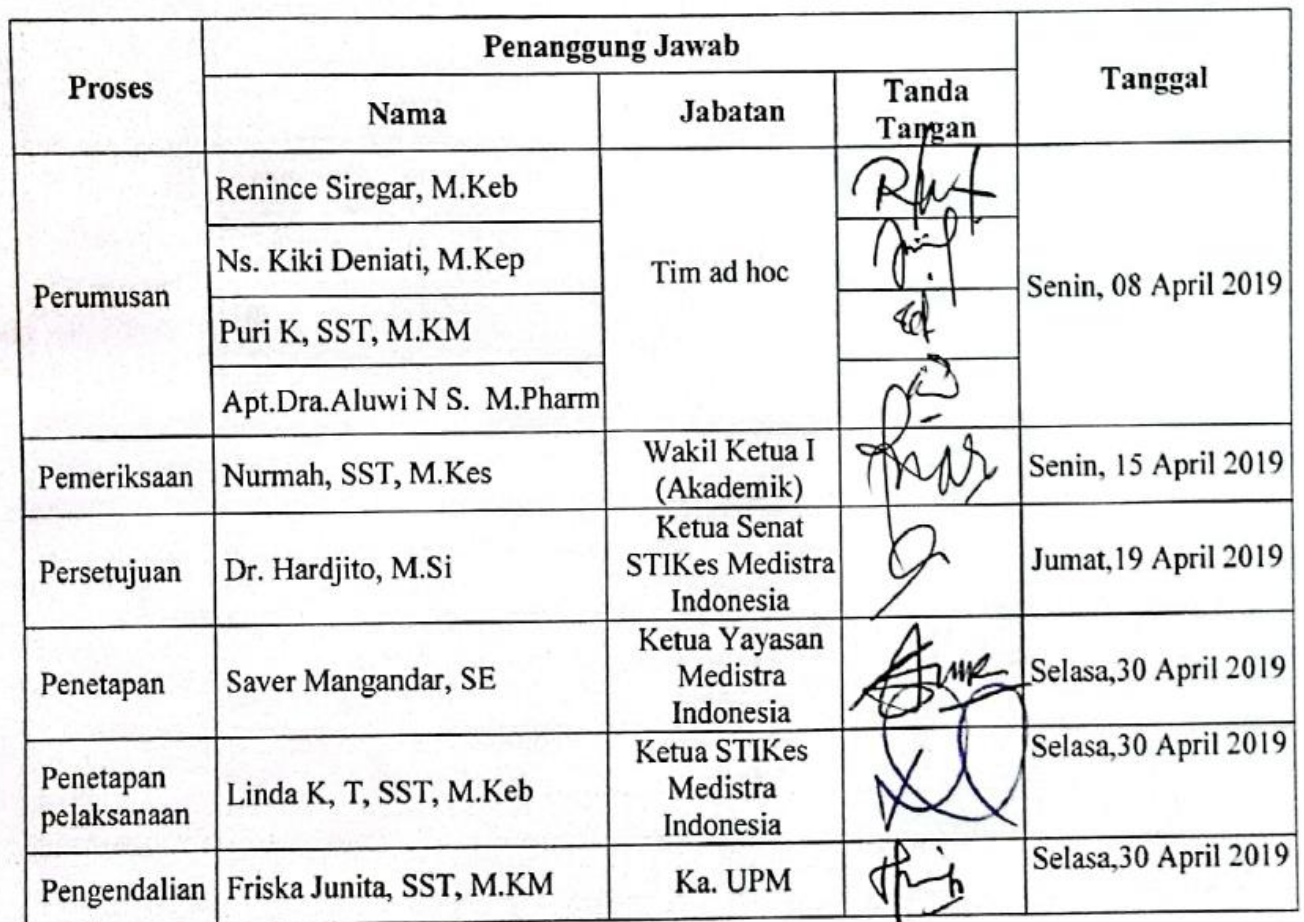 Proses
Penanggung Jawab
Tanggal
Nama
Jabatan
Tanda
Tangan
Perumusan
Renince Siregar, M.Keb
Ns. Kiki Deniati, M.Kep
Puri K, SST, M.KM
Apt.Dra.Aluwi N S. M.Pharm
Tim ad hoc
Senin, 08 April 2019
Pemeriksaan
Nurmah, SST, M.Kes
Wakil Ketua I
(Akademik)
Senin, 15 April 2019
Persetujuan
Dr. Hardjito, M.Si
Ketua Senat
STIKes Medistra
Indonesia
Jumat,19 April 2019
Penetapan
Saver Mangandar, SE
Ketua Yayasan
Medistra
Indonesia
Selasa,30 April 2019
Penetapan
pelaksanaan
Linda K, T, SST, M.Keb
Ketua STIKes
Medistra
Indonesia
Selasa,30 April 2019
Pengendalian
Friska Junita, SST, M.KM
Ka. UPM
Selasa,30 April 2019